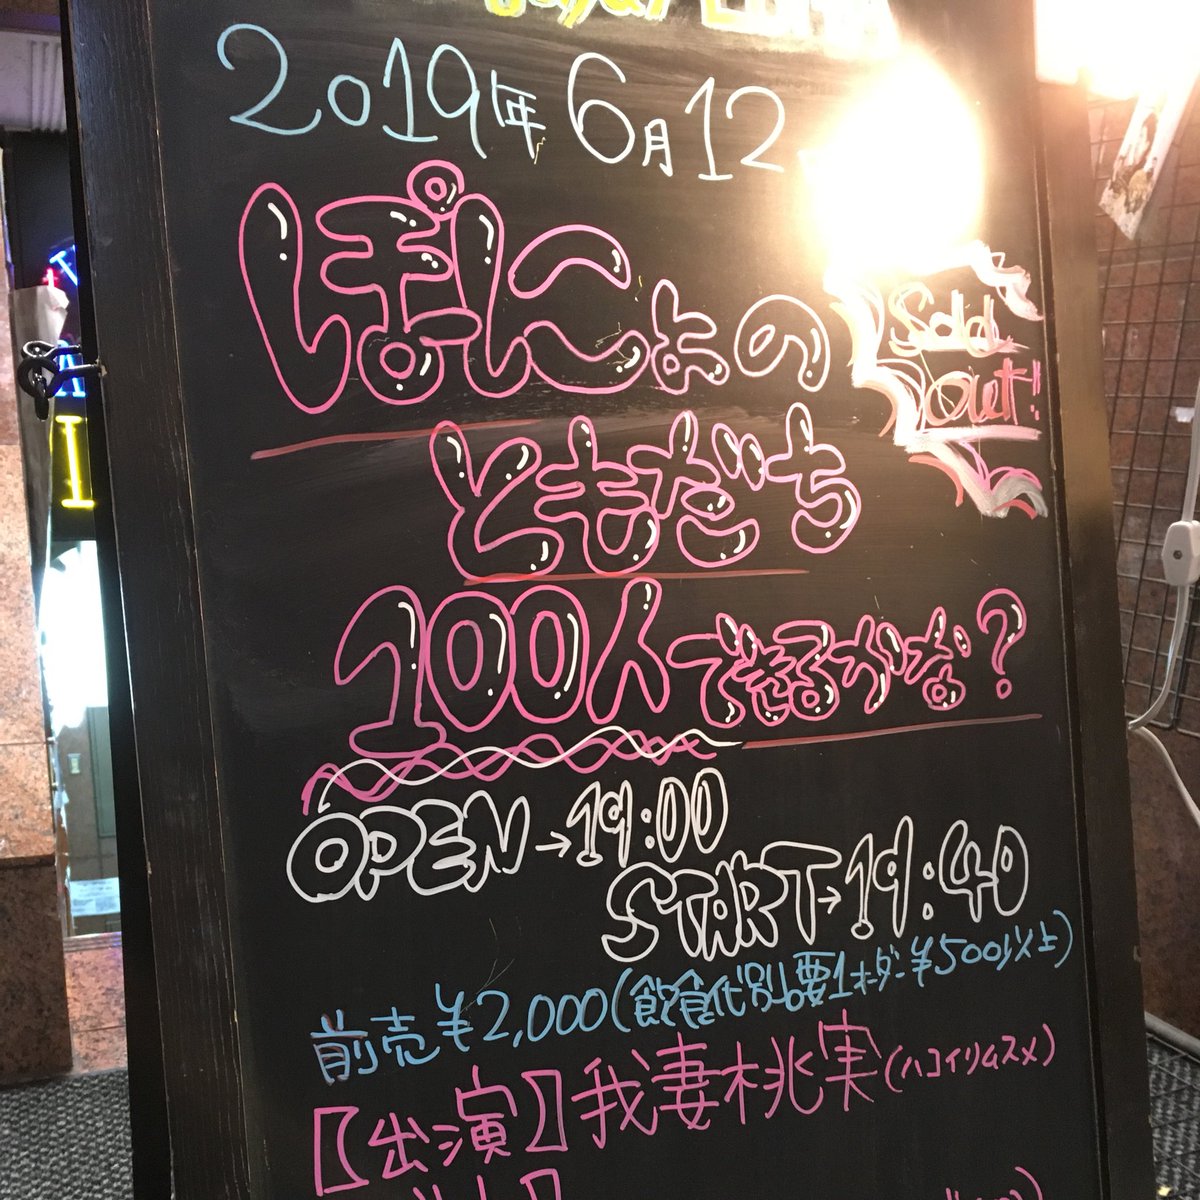 2019年 6月12
ぽにょの
Sold
out!!
ともだち
100人できるかな?
OPEN→19:00
START→19:40
前売¥2,000(飲食代別必要1オーダー¥500以上)
【出演】我妻桃実(ハコイリムスメ)